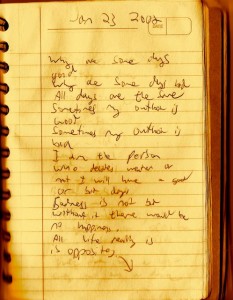 Jan 23 2002
Why are some days
good
Why are some days bad
All days are the same
Sometimes my outlook is
good
Sometimes my outlook is
bad
I am the person
who decides wether or
not I will have a good
or bad day
Sadness is not bad
without it there would be
no happiness.
All life really is
is opposites